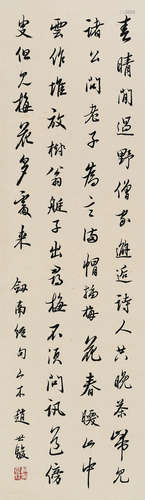 春晴閒過野僧家邂逅詩人共晚茶歸見
諸公問老子為言滿帽插梅花春暖山中
雲作堆放翁艇子出尋梅不須問訊道傍
叟但覓梅花多處來 劍南絕句 趙世駿